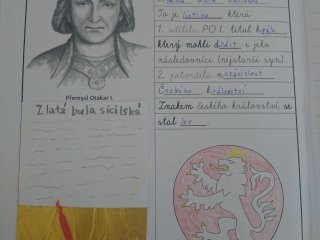 Přemysl Otakar I.
Zlatá bula sicilská
To je listina, která
1. udělila PO I. titul krále,
který mohli dědit i jeho
následovníci (nejstarší syn).
2. potvrdila nezávislost
Českého království.
Znakem českého království se
stal lev.